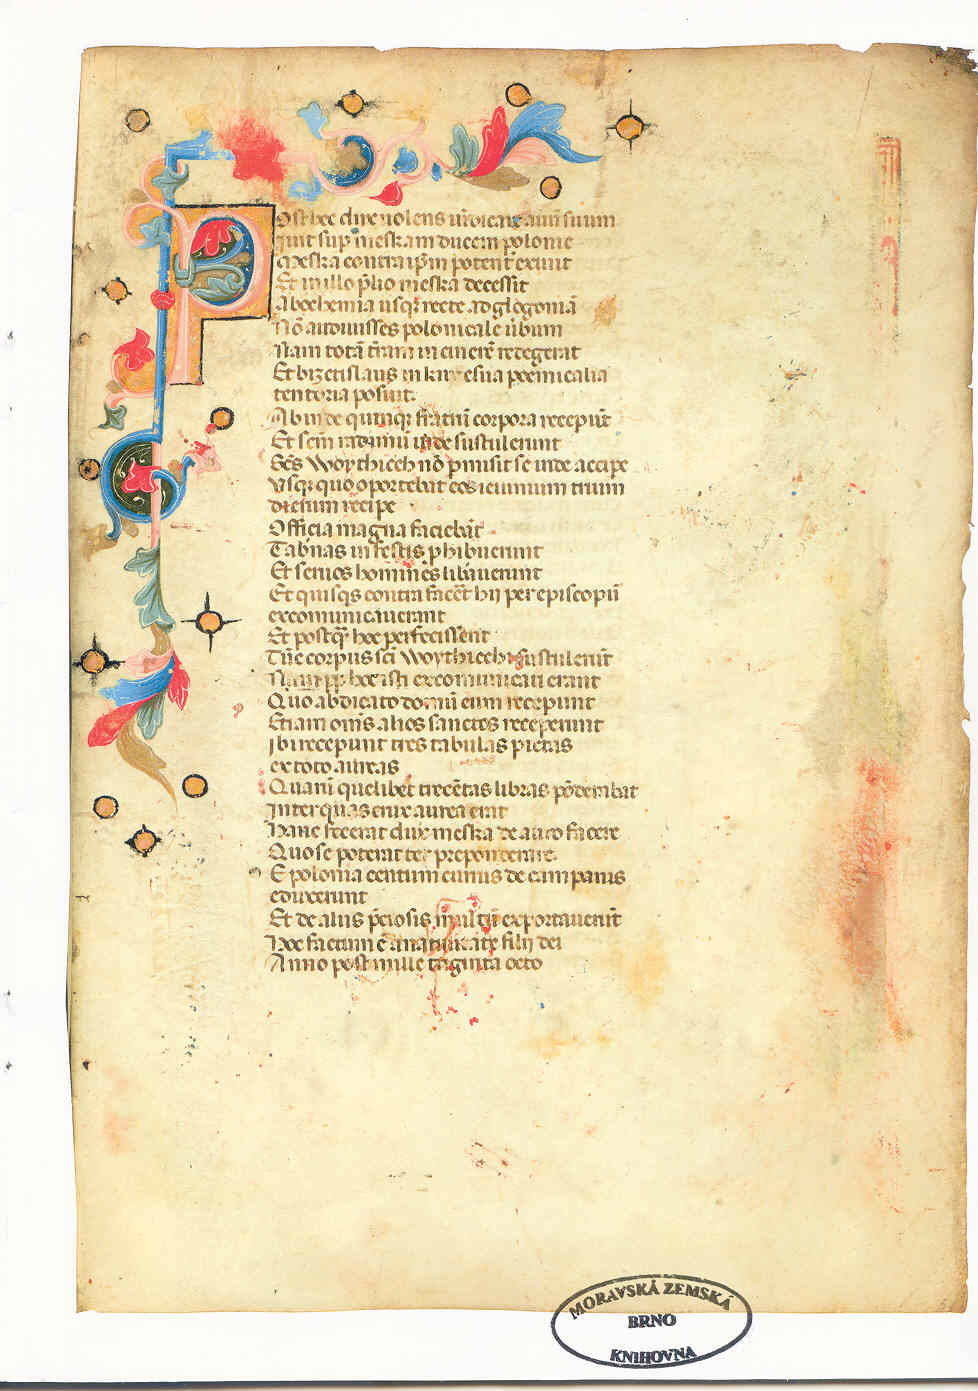 Post hec dux uolens uīdicare auū suum
Iuit sup meskam ducem polonie
Meska contra ip̄m potent̄ exiuit
Et in illo p̄lio meska decessit
A boehemia usq; recte ad glogouiā
Nō audiuisses polonicale ūbum
Nam totā t̄ram in cinerē redegerat
Et brzetislaus in sua poemicalia
tentoria posuit.
Abinde quinq; fratrū corpora recepūt
Et scm̄ radimū inde sustulerunt
Sc̄s Woythiech nō p̄misit se inde accipe
Vsq; quo oportebat eos ieiunium trium
dierum recipe
Officia magna faciebāt
Tabnas in festis p̄hibuerunt
Et seruos homines libauerunt
Et quisq̄s contra facēt hij per episcopū
excomunicauerant
Et postq̄ hec perfecissent
Tūc corpus sc̄i Woythiech sustulerūt
Nam pp̄ hoc isti excomunicati erant
Quo abdicato domū eum recepunt
Etiam om̄s alios sanctos receperunt
Ibi recepunt tres tabulas pictas
ex toto aureas
Quarū quelibet trecētas libras pōderabat
Inter quas crux aurea erat
Hanc fecerat dux meska de auro facere
Quo se poterat ter preponderare.
E polonia centum curris de campanis
eduxerunt
Et de aliis p̄ciosis multū exportauerūt
Hoc factum ē a natiuitate filij dei
Anno post mille triginta octo
MORAVSKÁ ZEMSKÁ
BRNO
KNIHOVNA